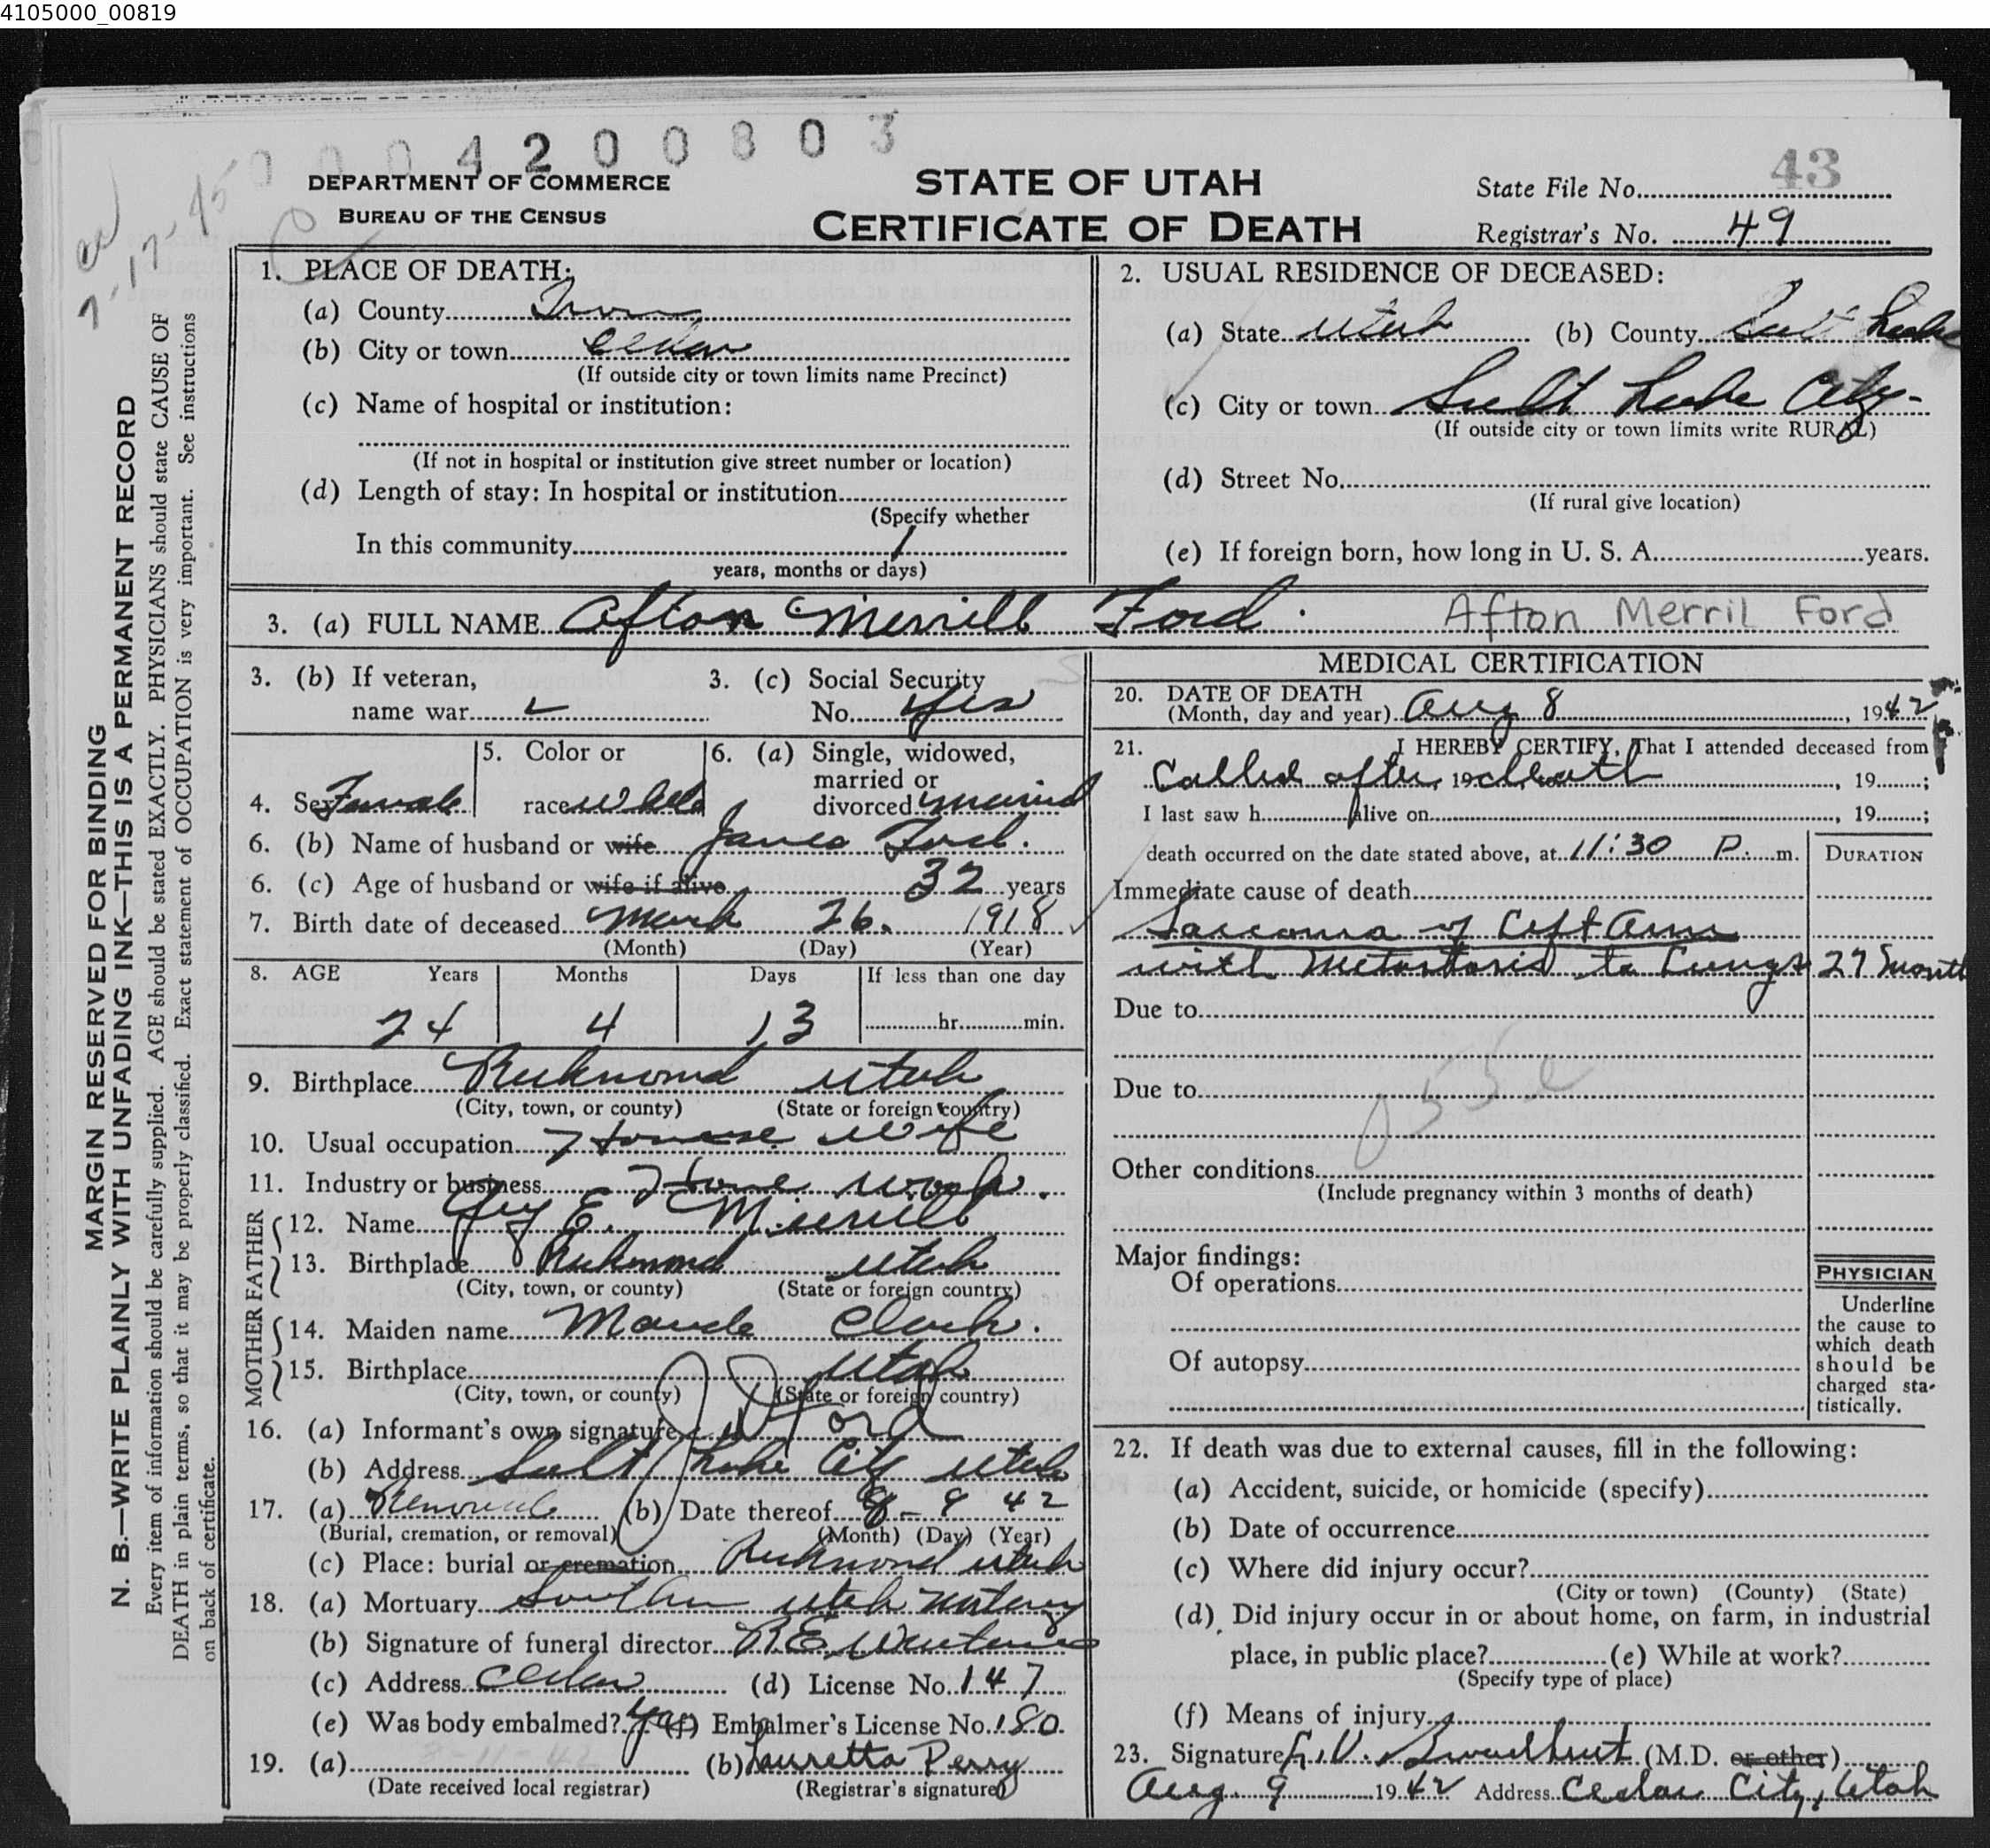 4105000_00819
0004200803
DEPARTMENT OF COMMERCE
BUREAU OF THE CENSUS
STATE OF UTAH
CERTIFICATE OF DEATH
State File No. 43
Registrar's No. 49
7-17-45
MARGIN RESERVED FOR BINDING
N. B.—WRITE PLAINLY WITH UNFADING INK—THIS IS A PERMANENT RECORD
Every item of information should be carefully supplied. AGE should be stated EXACTLY. PHYSICIANS should state CAUSE OF
DEATH in plain terms, so that it may be properly classified. Exact statement of OCCUPATION is very important. See instructions
on back of certificate.
1. PLACE OF DEATH:
(a) County Iron
(b) City or town Cedar
(If outside city or town limits name Precinct)
(c) Name of hospital or institution:
(If not in hospital or institution give street number or location)
(d) Length of stay: In hospital or institution
(Specify whether
In this community 1
years, months or days)
2. USUAL RESIDENCE OF DECEASED:
(a) State Utah (b) County Salt Lake
(c) City or town Salt Lake City-
(If outside city or town limits write RURAL)
(d) Street No.
(If rural give location)
(e) If foreign born, how long in U. S. A. years.
3. (a) FULL NAME Afton Merrill Ford. Afton Merril Ford
3. (b) If veteran,
name war
3. (c) Social Security
No. Yes
4. Sex Female
5. Color or
race White
6. (a) Single, widowed,
married or
divorced married
6. (b) Name of husband or wife James Ford.
6. (c) Age of husband or wife if alive 32 years
7. Birth date of deceased March 26. 1918
(Month) (Day) (Year)
8. AGE Years Months Days If less than one day
24 4 13 hr. min.
9. Birthplace Richmond Utah
(City, town, or county) (State or foreign country)
10. Usual occupation House wife
11. Industry or business Home work.
FATHER
12. Name E. Merrill
13. Birthplace Richmond Utah
(City, town, or county) (State or foreign country)
MOTHER
14. Maiden name Maude Clark.
15. Birthplace Utah
(City, town, or county) (State or foreign country)
16. (a) Informant's own signature Ford
(b) Address Salt Lake City Utah
17. (a) Removal (b) Date thereof 8-9 42
(Burial, cremation, or removal) (Month) (Day) (Year)
(c) Place: burial or cremation Richmond Utah
18. (a) Mortuary Southern Utah Mortuary
(b) Signature of funeral director
(c) Address Cedar (d) License No. 147
(e) Was body embalmed? Yes (f) Embalmer's License No. 180.
19. (a) 8-11-42 (b) Lauretta Perry
(Date received local registrar) (Registrar's signature)
MEDICAL CERTIFICATION
20. DATE OF DEATH
(Month, day and year) Aug 8, 1942
21. I HEREBY CERTIFY, That I attended deceased from
Called after, 19 death, 19 ;
I last saw h alive on , 19 ;
death occurred on the date stated above, at 11:30 P. m.
DURATION
Immediate cause of death
Sarcoma of Left Arm
with Metastasis to Lungs 27 months
Due to
Due to
055e
Other conditions
(Include pregnancy within 3 months of death)
Major findings:
Of operations
Of autopsy
PHYSICIAN
Underline
the cause to
which death
should be
charged sta-
tistically.
22. If death was due to external causes, fill in the following:
(a) Accident, suicide, or homicide (specify)
(b) Date of occurrence
(c) Where did injury occur?
(City or town) (County) (State)
(d) Did injury occur in or about home, on farm, in industrial
place, in public place? (e) While at work?
(Specify type of place)
(f) Means of injury
23. Signature (M.D. or other)
Aug. 9 1942 Address Cedar City, Utah